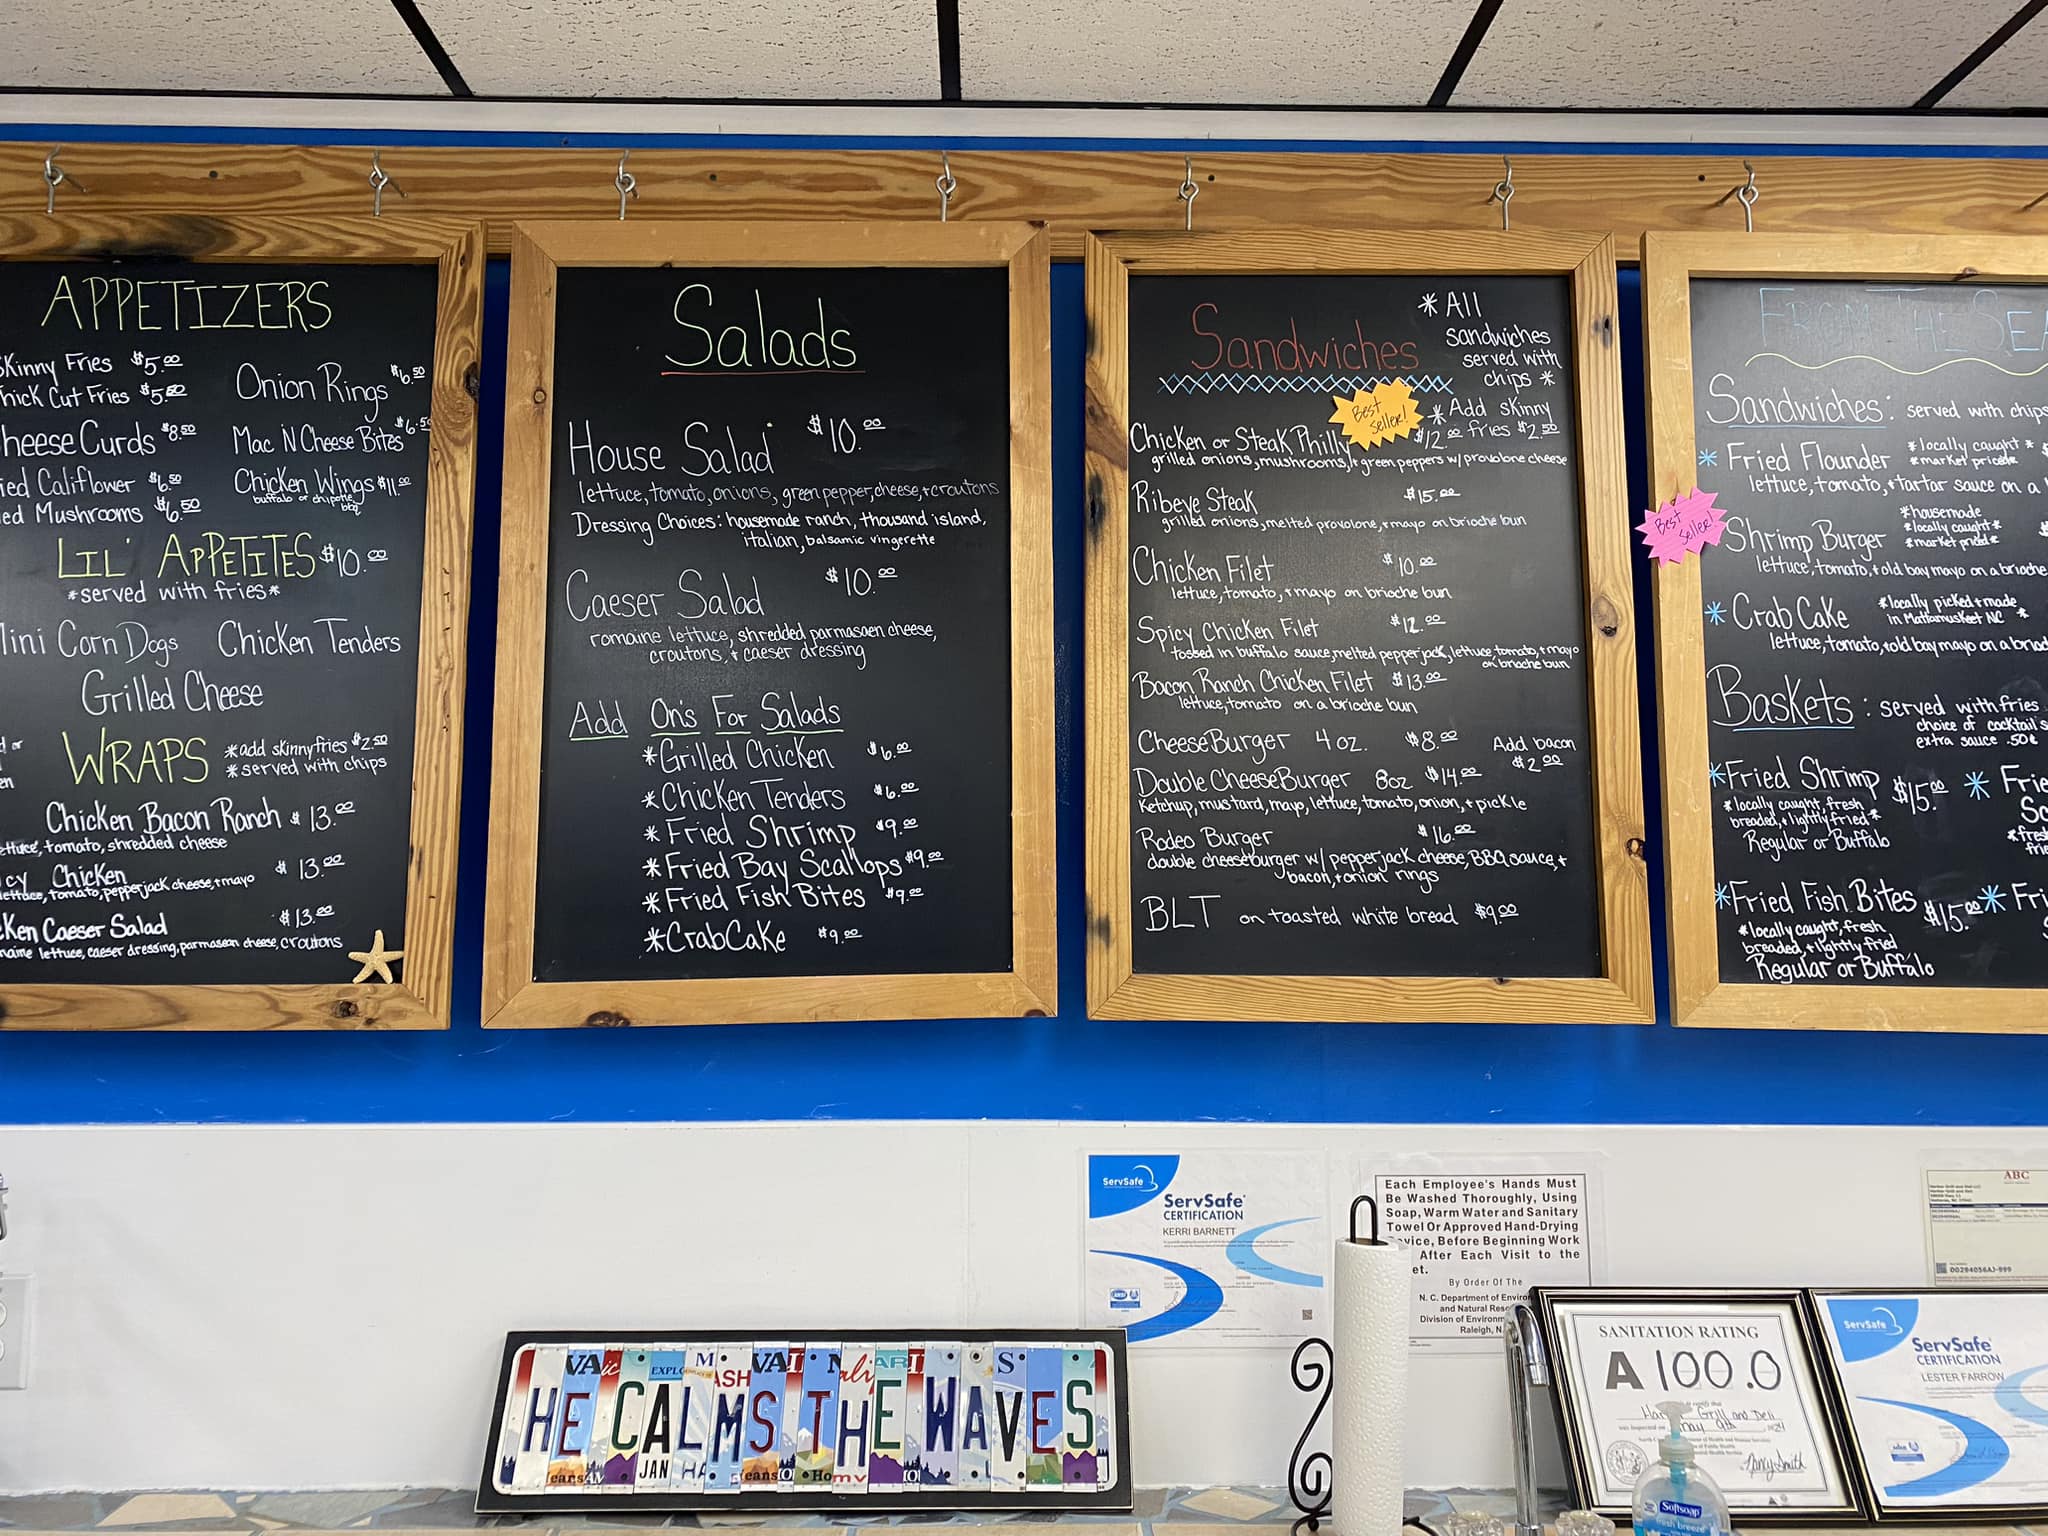 APPETIZERS
Skinny Fries $5.00
Thick Cut Fries $5.50
Cheese Curds $8.50
Fried Califlower $6.50
Fried Mushrooms $6.50
Onion Rings $6.50
Mac N Cheese Bites $6.50
Chicken Wings $11.00
buffalo or chipotle
bbq
LIL' APPETITES $10.00
*served with fries*
Mini Corn Dogs Chicken Tenders
Grilled Cheese
WRAPS
*add skinny fries $2.50
*served with chips
Chicken Bacon Ranch $13.00
lettuce, tomato, shredded cheese
Spicy Chicken $13.00
lettuce, tomato, pepperjack cheese, + mayo
Chicken Caeser Salad $13.00
romaine lettuce, caeser dressing, parmasean cheese, croutons
Salads
House Salad $10.00
lettuce, tomato, onions, green pepper, cheese, + croutons
Dressing Choices: housemade ranch, thousand island,
italian, balsamic vingerette
Caeser Salad $10.00
romaine lettuce, shredded parmasaen cheese,
croutons, + caeser dressing
Add On's For Salads
*Grilled Chicken $6.00
*Chicken Tenders $6.00
*Fried Shrimp $9.00
*Fried Bay Scallops $9.00
*Fried Fish Bites $9.00
*Crab Cake $9.00
Sandwiches
*All
sandwiches
served with
chips *
Best
Seller!
*Add skinny
fries $2.50
Chicken or Steak Philly $12.00
grilled onions, mushrooms, + green peppers w/ provolone cheese
Ribeye Steak $15.00
grilled onions, melted provolone, + mayo on brioche bun
Chicken Filet $10.00
lettuce, tomato, + mayo on brioche bun
Spicy Chicken Filet $12.00
tossed in buffalo sauce, melted pepperjack, lettuce, tomato, + mayo
on brioche bun
Bacon Ranch Chicken Filet $13.00
lettuce, tomato on a brioche bun
CheeseBurger 4 oz. $8.00
Add bacon
$2.00
Double CheeseBurger 8oz $14.00
ketchup, mustard, mayo, lettuce, tomato, onion, + pickle
Rodeo Burger $16.00
double cheeseburger w/ pepperjack cheese, BBQ sauce, +
bacon, + onion rings
BLT on toasted white bread $9.00
FROM THE SEA
Sandwiches: served with chips
*Fried Flounder
*locally caught*
*market priced*
lettuce, tomato, + tartar sauce on a
Best
Seller!
Shrimp Burger
*housemade
*locally caught*
*market priced*
lettuce, tomato, + old bay mayo on a brioche
*Crab Cake
*locally picked + made
in Mattamuskeet NC *
lettuce, tomato, + old bay mayo on a brioche
Baskets: served with fries
choice of cocktail
extra sauce .50¢
*Fried Shrimp $15.00
*locally caught, fresh
breaded, + lightly fried*
Regular or Buffalo
*Fried Fish Bites $15.00
*locally caught, fresh
breaded, + lightly fried
Regular or Buffalo
ServSafe
ServSafe
CERTIFICATION
KERRI BARNETT
Each Employee's Hands Must
Be Washed Thoroughly, Using
Soap, Warm Water and Sanitary
Towel Or Approved Hand-Drying
Before Beginning Work
After Each Visit to the
By Order Of The
N. C. Department of
and Natural
Division of
Raleigh, N
ABC
00294056AJ-999
SANITATION RATING
A 100.0
Grill and Deli
Nancy Smith
ServSafe
ServSafe
CERTIFICATION
LESTER FARROW
HE CALMS THE WAVES
JAN
Softsoap
fresh breeze